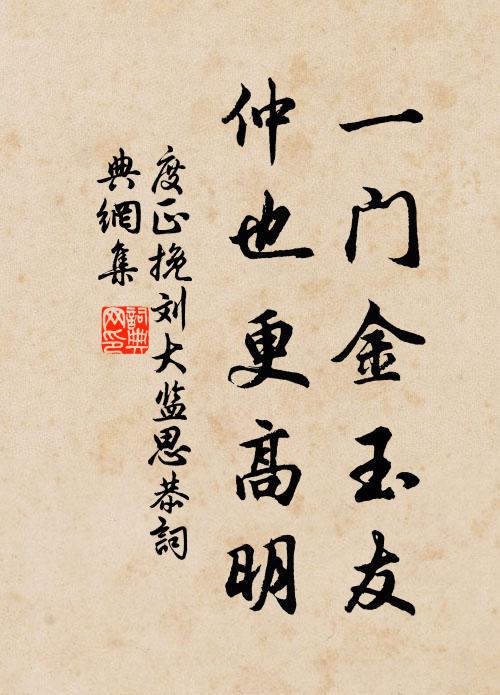 一门金玉友
仲也更高明
度正挽刘大监思恭詞
典網集
詞典
网印